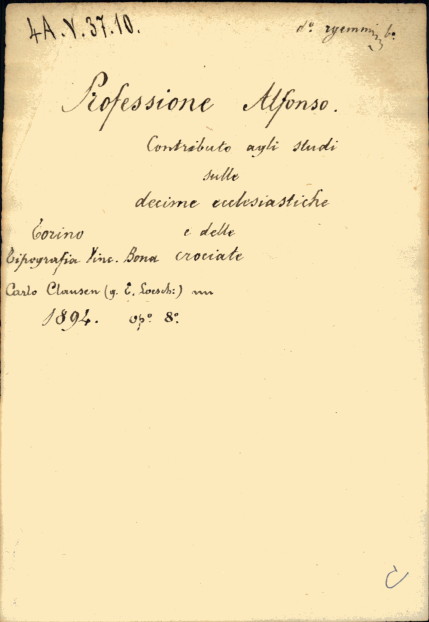 4A.V.37.10.
Professione Alfonso.
Contributo agli studi
sulle
decime ecclesiastiche
Torino e delle
Tipografia Vinc. Bona crociate
Carlo Clausen (g. E. Loesch:)
1894. op° 8°.
C